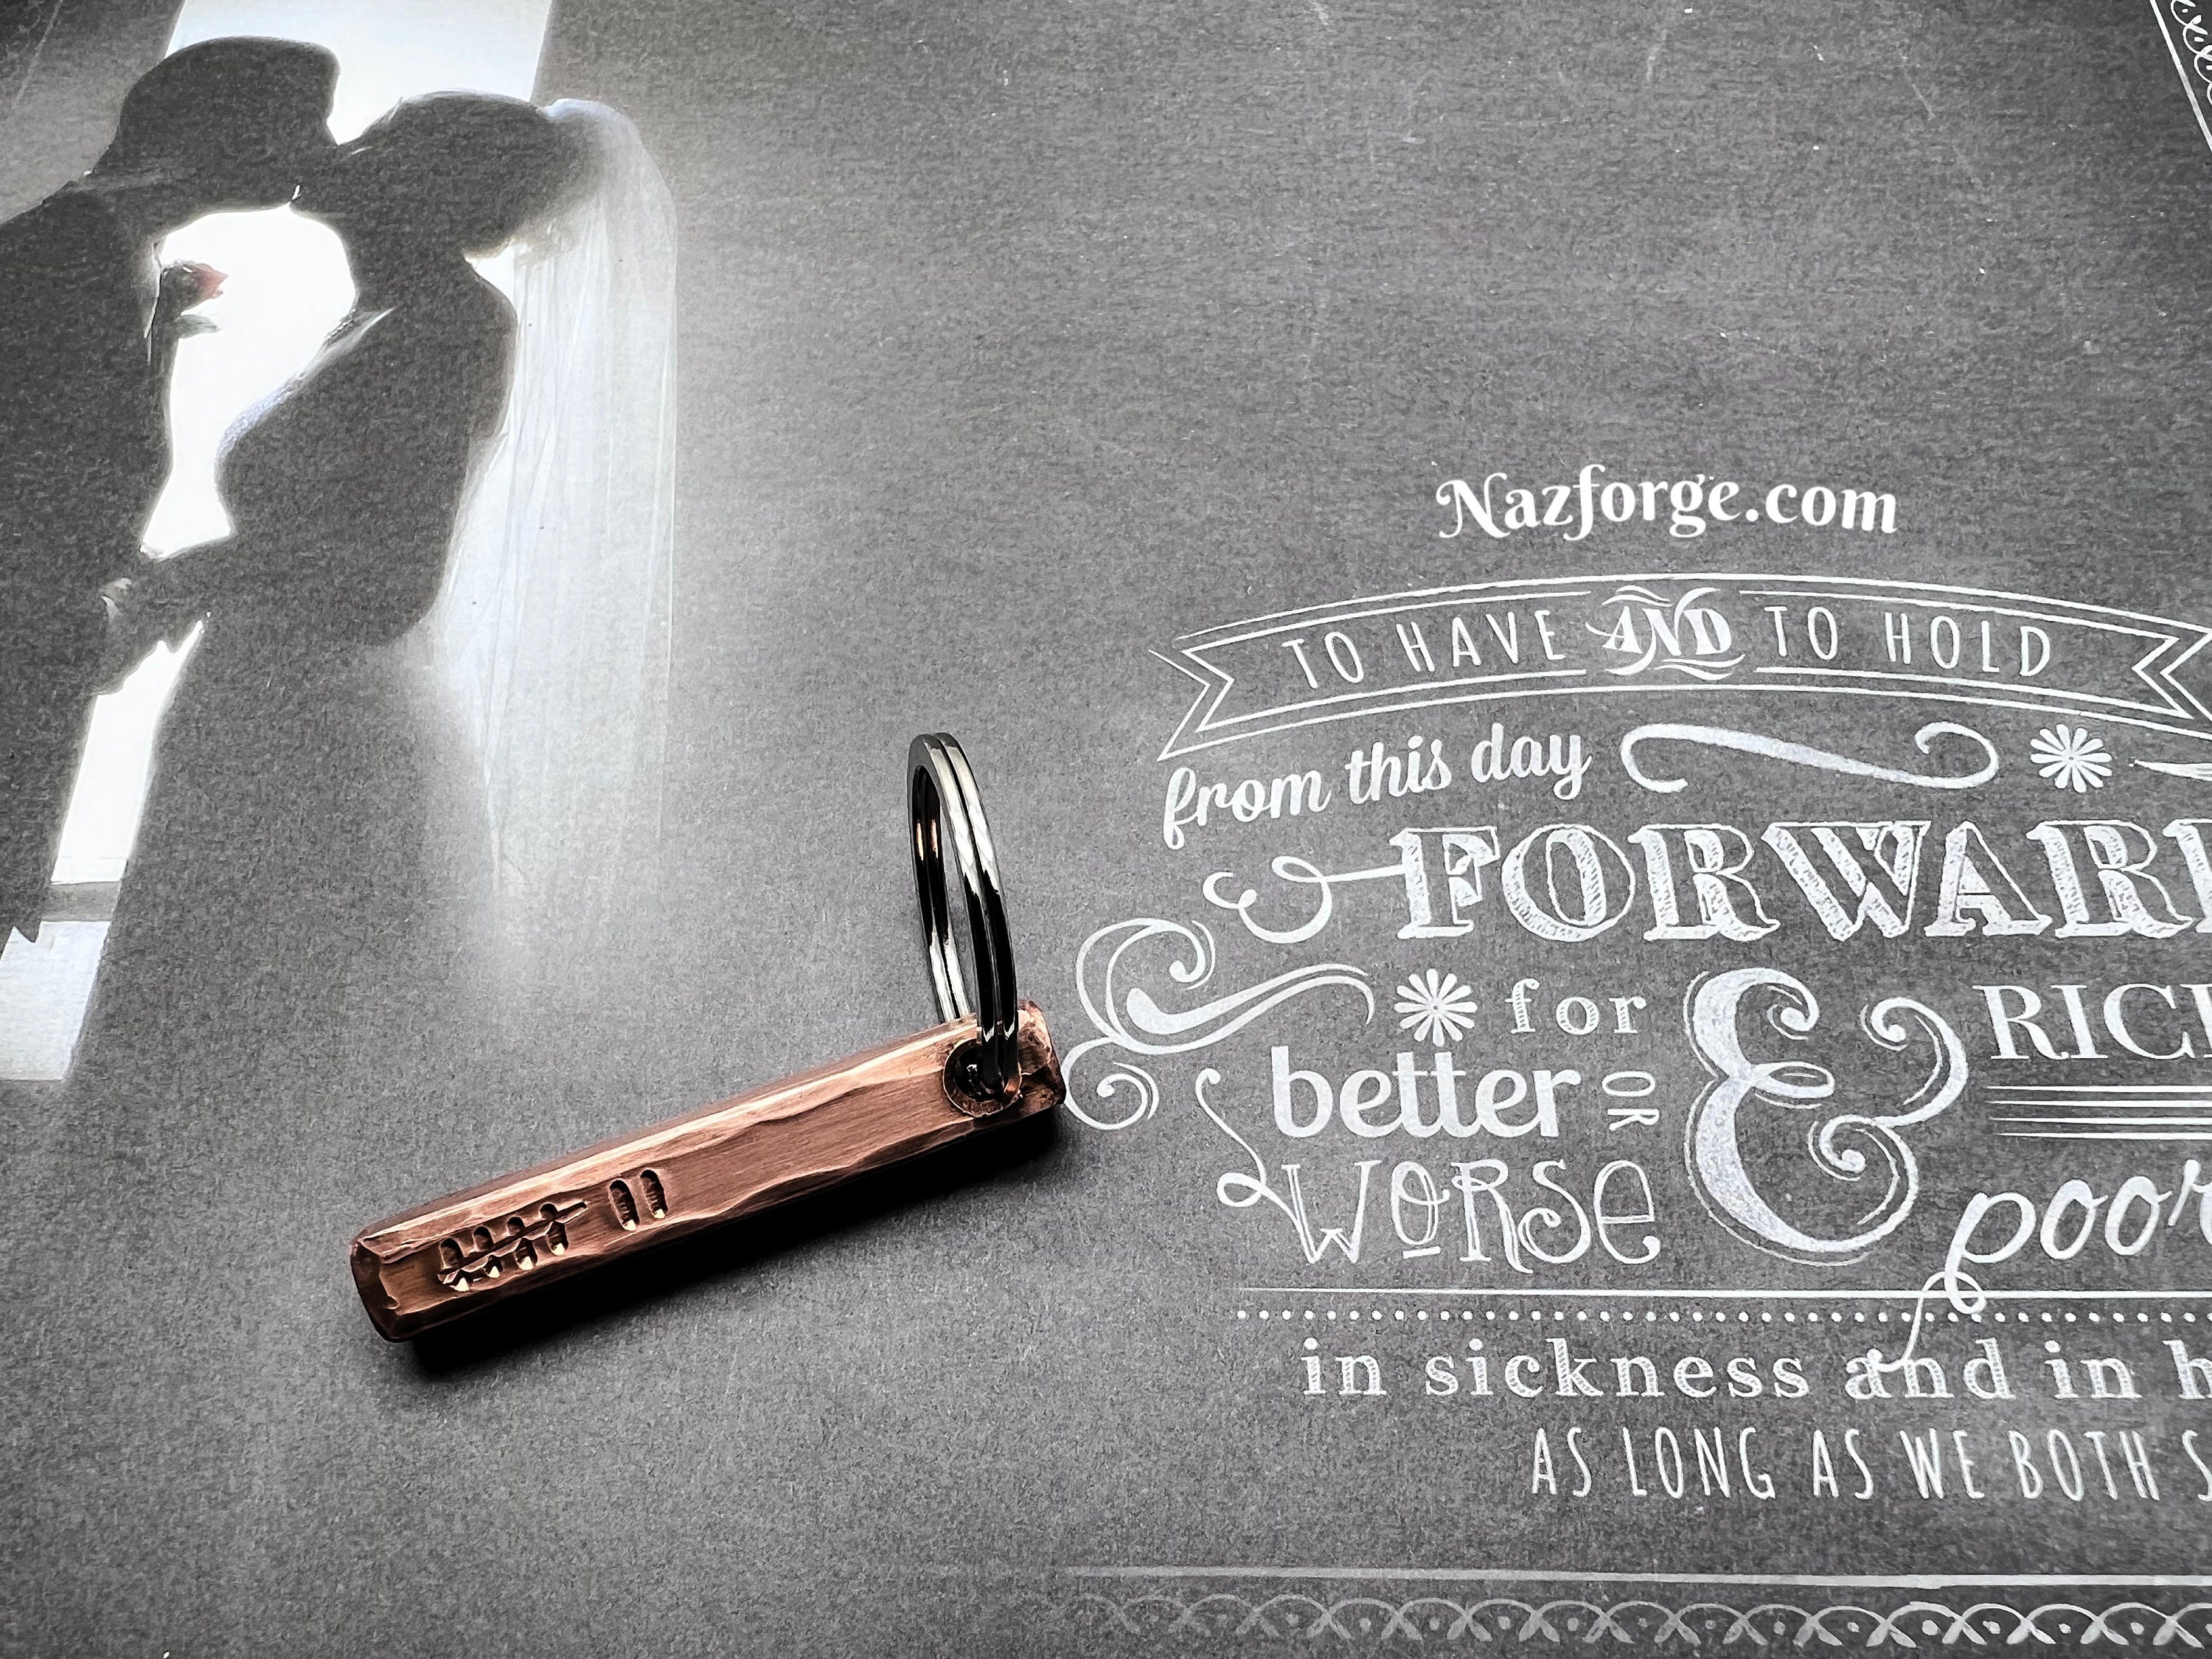 Nazforge.com
TO HAVE AND TO HOLD
from this day
FORWAR
for
better OR
WORSE
&
RIC
poor
in sickness and in h
AS LONG AS WE BOTH S